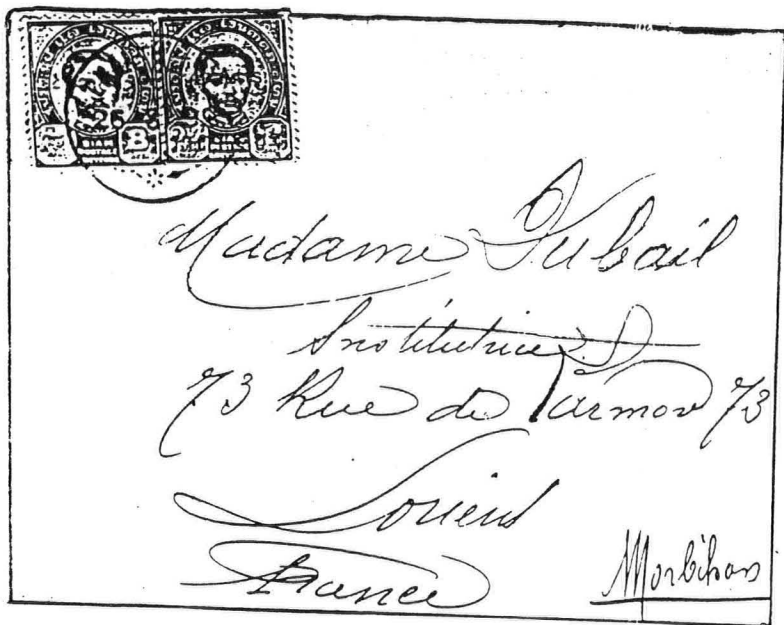 Madame Dubail
Institutrice
73 Rue de Larmor 73
Lorient
France
Morbihan